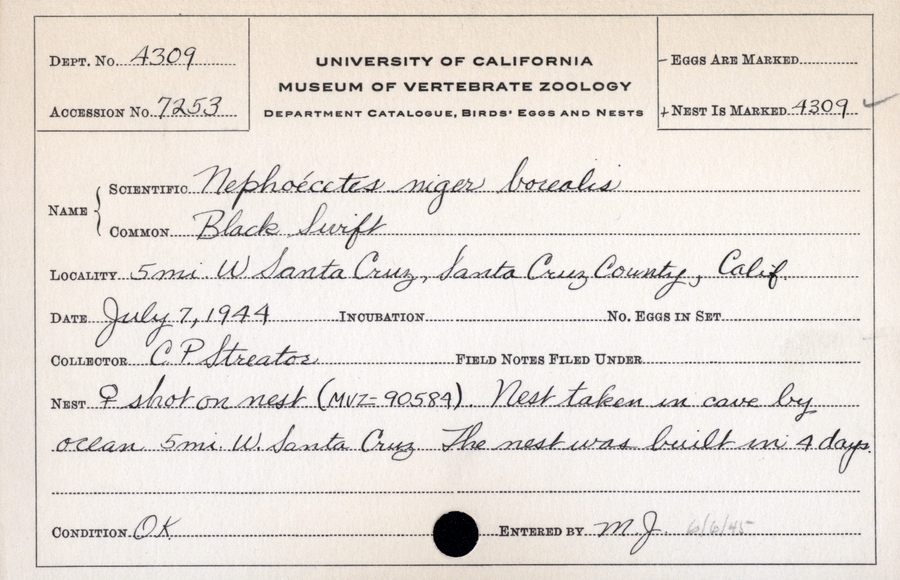 DEPT. No. 4309
ACCESSION No. 7253
UNIVERSITY OF CALIFORNIA
MUSEUM OF VERTEBRATE ZOOLOGY
DEPARTMENT CATALOGUE, BIRDS' EGGS AND NESTS
- EGGS ARE MARKED
+ NEST IS MARKED 4309 ✓
NAME
SCIENTIFIC Nephoécetes niger borealis
COMMON Black Swift
LOCALITY 5 mi. W Santa Cruz, Santa Cruz County, Calif.
DATE July 7, 1944 INCUBATION No. EGGS IN SET
COLLECTOR C. P. Streator FIELD NOTES FILED UNDER
NEST ♀ shot on nest (MVZ= 90584). Nest taken in cave by
ocean 5 mi. W. Santa Cruz The nest was built in 4 days.
CONDITION OK ENTERED BY M.J. 6/6/45